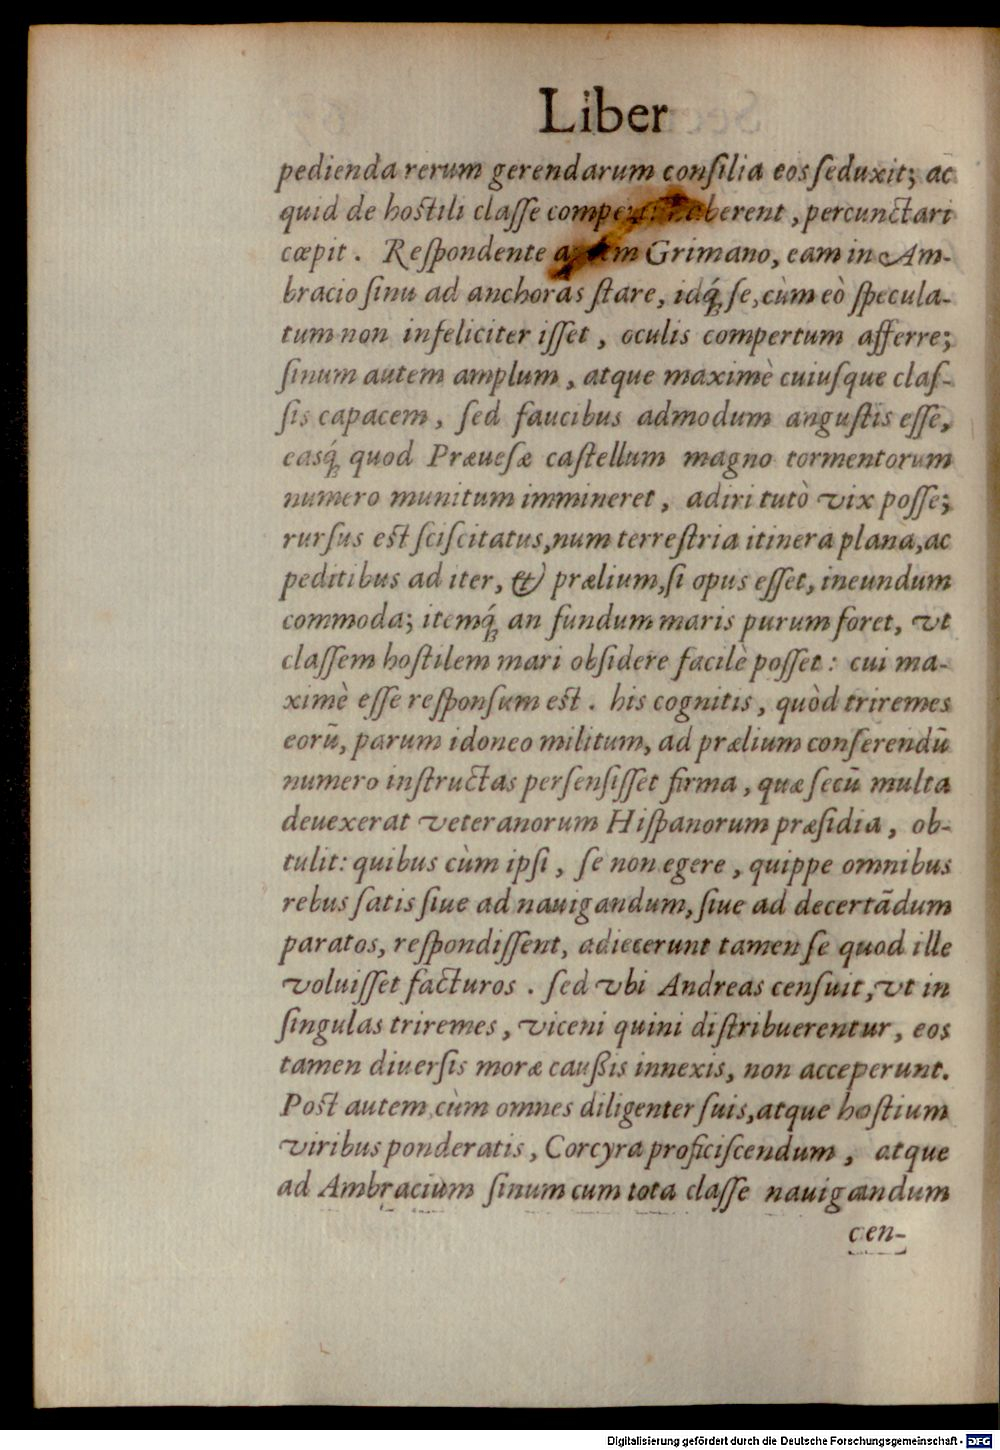 Liber
pedienda rerum gerendarum conſilia eos ſeduxit; ac
quid de hoſtili claſſe berent, percunctari
cœpit. Reſpondente Grimano, eam in Am-
bracio ſinu ad anchoras ſtare, idq́; ſe, cùm eò ſpecula-
tum non infeliciter iſſet, oculis compertum afferre;
ſinum autem amplum, atque maximè cuiuſque claſ-
ſis capacem, ſed faucibus admodum anguſtis eſſe,
easq́; quod Præueſæ caſtellum magno tormentorum
numero munitum immineret, adiri tutò vix poſſe;
rurſus eſt ſciſcitatus, num terreſtria itinera plana, ac
peditibus ad iter, & prælium, ſi opus eſſet, ineundum
commoda; itemq́; an fundum maris purum foret, vt
claſſem hoſtilem mari obſidere facilè poſſet: cui ma-
ximè eſſe reſponſum eſt. his cognitis, quòd triremes
eorū, parum idoneo militum, ad prælium conferendū
numero inſtructas perſenſiſſet firma, quæ ſecū multa
deuexerat veteranorum Hiſpanorum præſidia, ob-
tulit: quibus cùm ipſi, ſe non egere, quippe omnibus
rebus ſatis ſiue ad nauigandum, ſiue ad decertãdum
paratos, reſpondiſſent, adiecerunt tamen ſe quod ille
voluiſſet facturos. ſed vbi Andreas cenſuit, vt in
ſingulas triremes, viceni quini diſtribuerentur, eos
tamen diuerſis moræ cauſsis innexis, non acceperunt.
Poſt autem cùm omnes diligenter ſuis, atque hoſtium
viribus ponderatis, Corcyra proficiſcendum, atque
ad Ambracium ſinum cum tota claſſe nauigandum
cen-
Digitalisierung gefördert durch die Deutsche Forschungsgemeinschaft - DFG